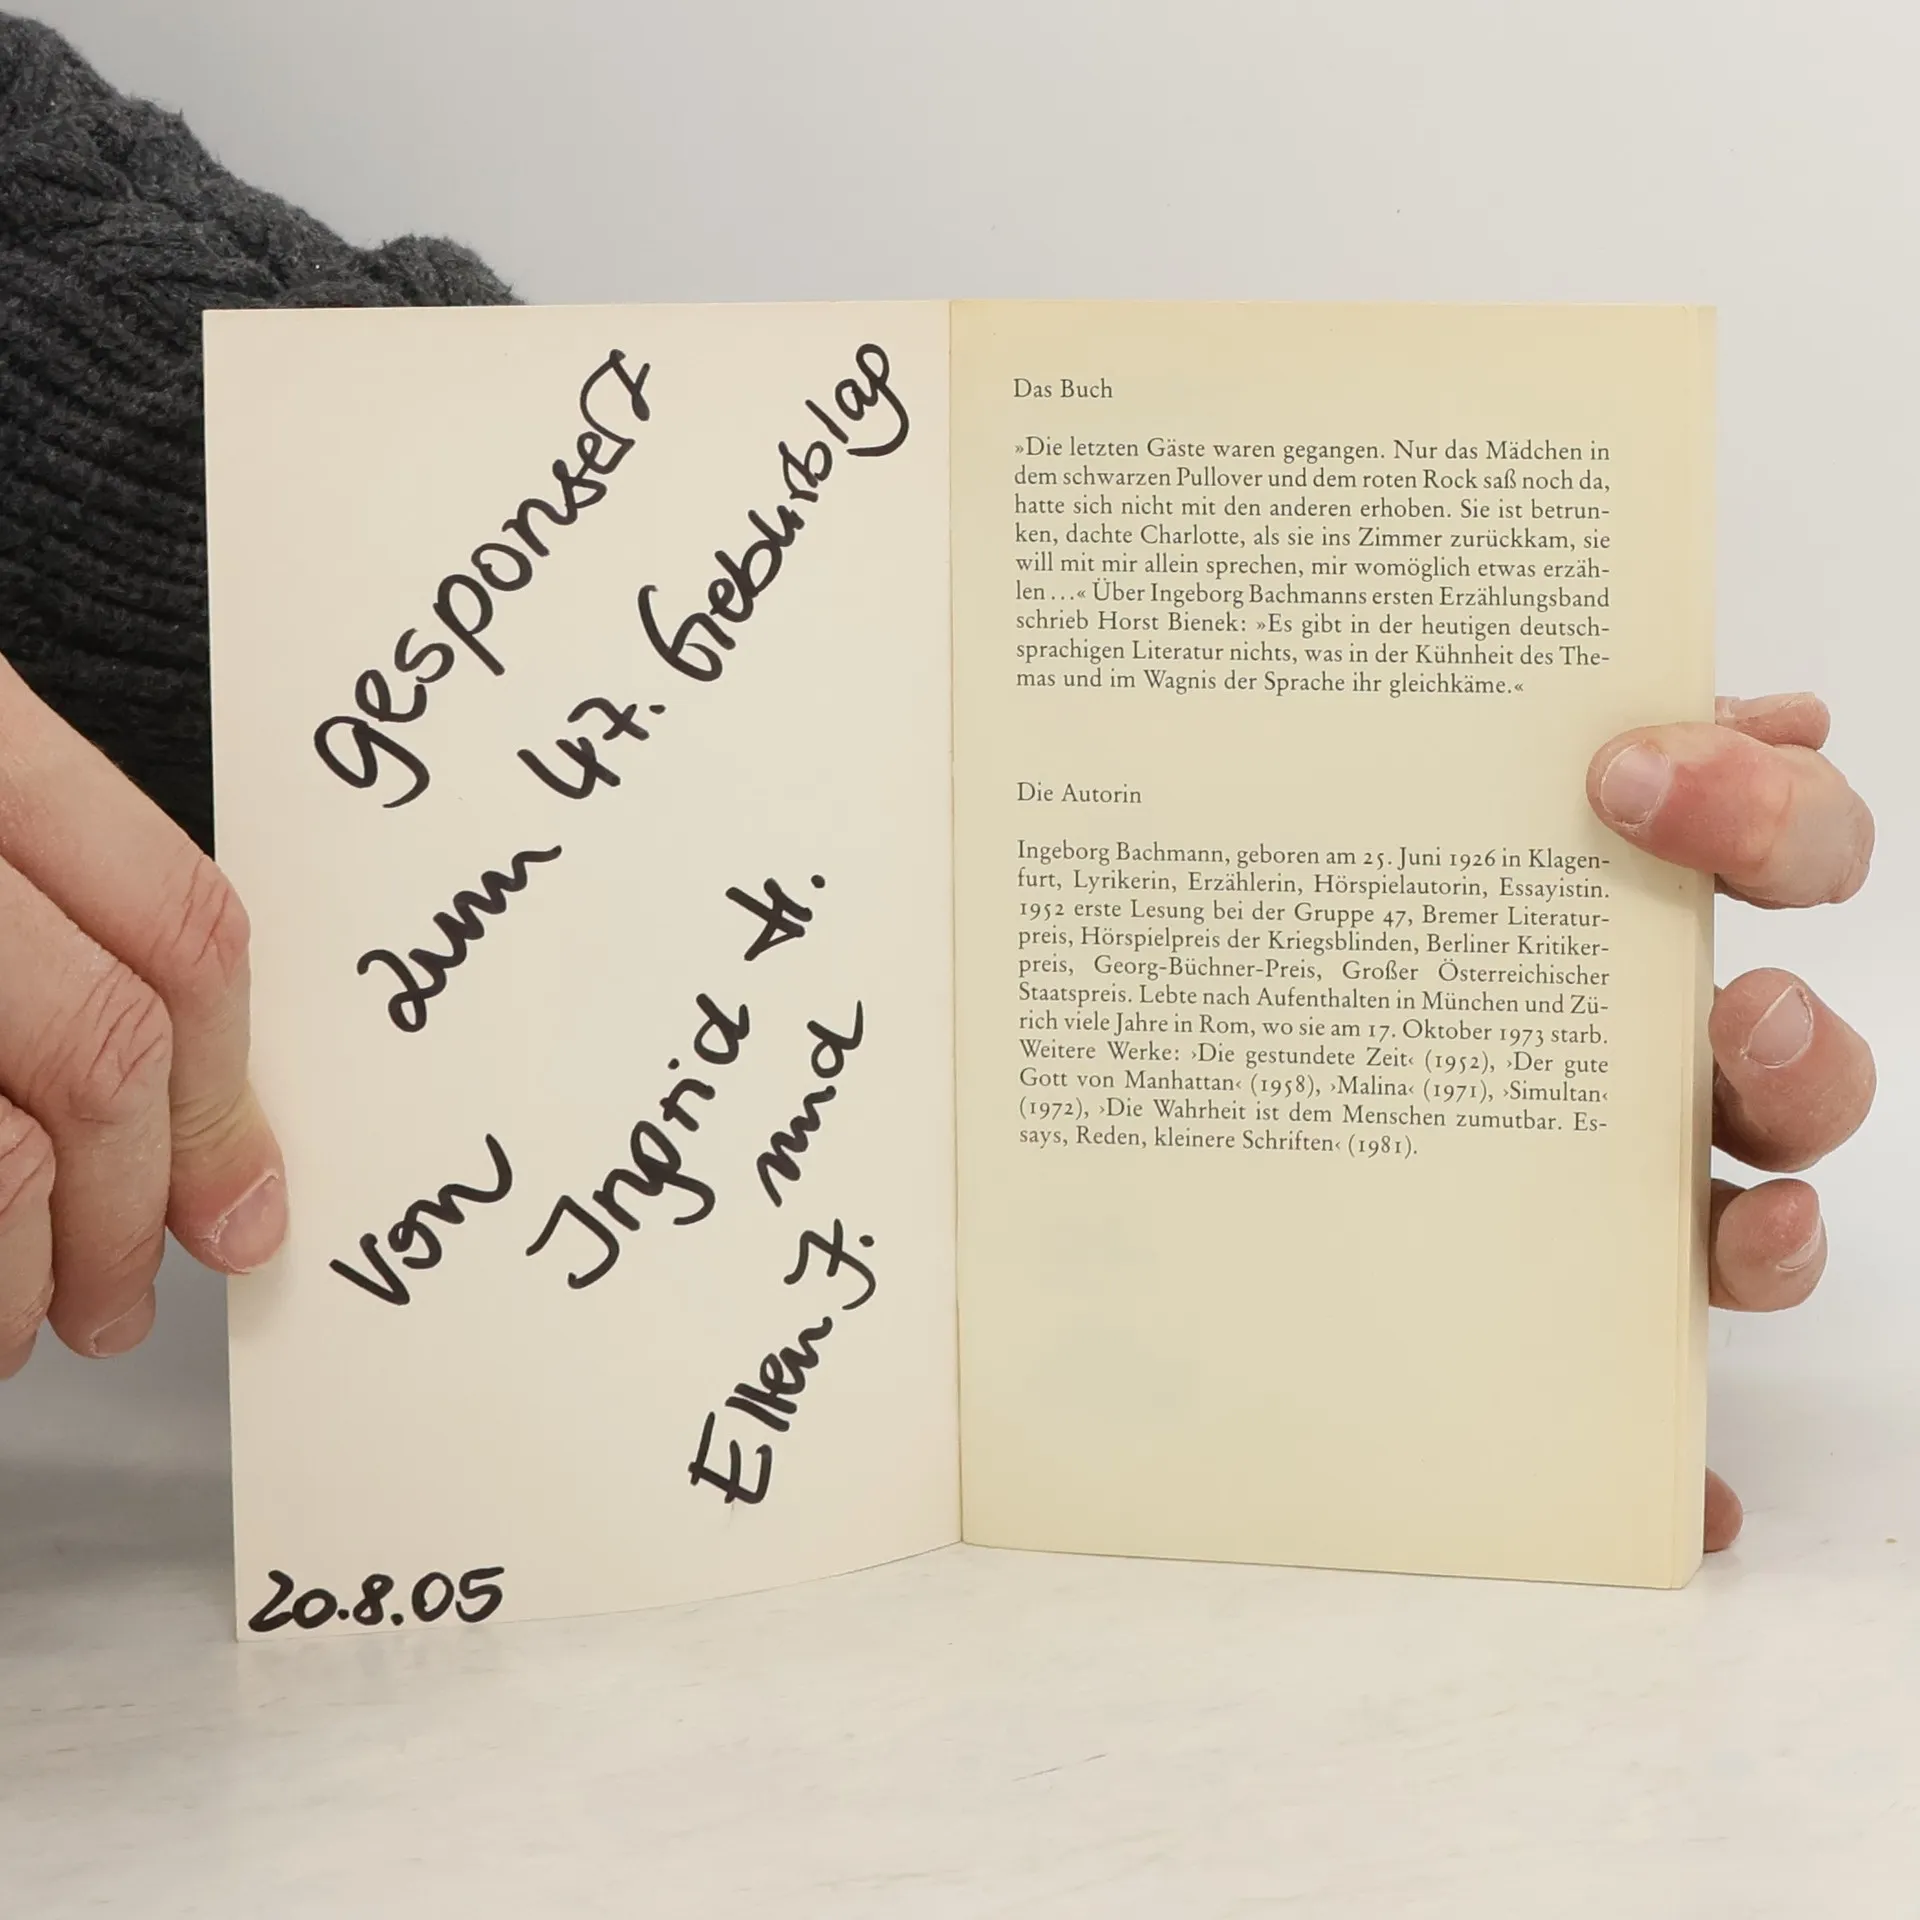 gesponsert
zum 47. Geburtstag
von
Ingrid H.
und
Ellen J.
20.8.05
Das Buch
»Die letzten Gäste waren gegangen. Nur das Mädchen in
dem schwarzen Pullover und dem roten Rock saß noch da,
hatte sich nicht mit den anderen erhoben. Sie ist betrun-
ken, dachte Charlotte, als sie ins Zimmer zurückkam, sie
will mit mir allein sprechen, mir womöglich etwas erzäh-
len...« Über Ingeborg Bachmanns ersten Erzählungsband
schrieb Horst Bienek: »Es gibt in der heutigen deutsch-
sprachigen Literatur nichts, was in der Kühnheit des The-
mas und im Wagnis der Sprache ihr gleichkäme.«
Die Autorin
Ingeborg Bachmann, geboren am 25. Juni 1926 in Klagen-
furt, Lyrikerin, Erzählerin, Hörspielautorin, Essayistin.
1952 erste Lesung bei der Gruppe 47, Bremer Literatur-
preis, Hörspielpreis der Kriegsblinden, Berliner Kritiker-
preis, Georg-Büchner-Preis, Großer Österreichischer
Staatspreis. Lebte nach Aufenthalten in München und Zü-
rich viele Jahre in Rom, wo sie am 17. Oktober 1973 starb.
Weitere Werke: ›Die gestundete Zeit‹ (1952), ›Der gute
Gott von Manhattan‹ (1958), ›Malina‹ (1971), ›Simultan‹
(1972), ›Die Wahrheit ist dem Menschen zumutbar. Es-
says, Reden, kleinere Schriften‹ (1981).